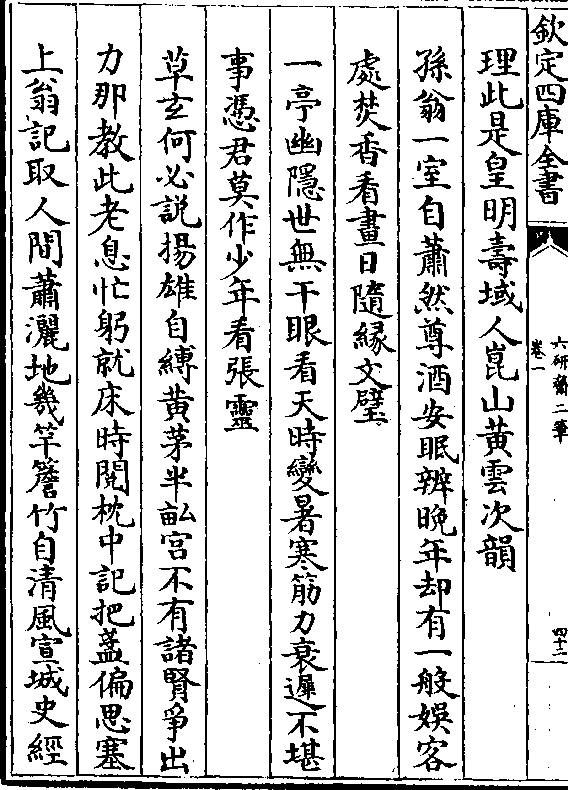 欽定四庫全書
六研齋二筆
卷一
四十二
理此是皇明壽域人崑山黄雲次韻
孫翁一室自蕭然尊酒安眠辨晚年却有一般娱客
處焚香看畫日隨縁文璧
一亭幽隱世無干眼看天時變暑寒筋力衰遲不堪
事憑君莫作少年看張靈
草玄何必説揚雄自縛黄茅半畝宫不有諸賢爭出
力那教此老息忙躬就床時閲枕中記把盖偏思塞
上翁記取人間蕭灑地幾竿簷竹自清風宣城史經